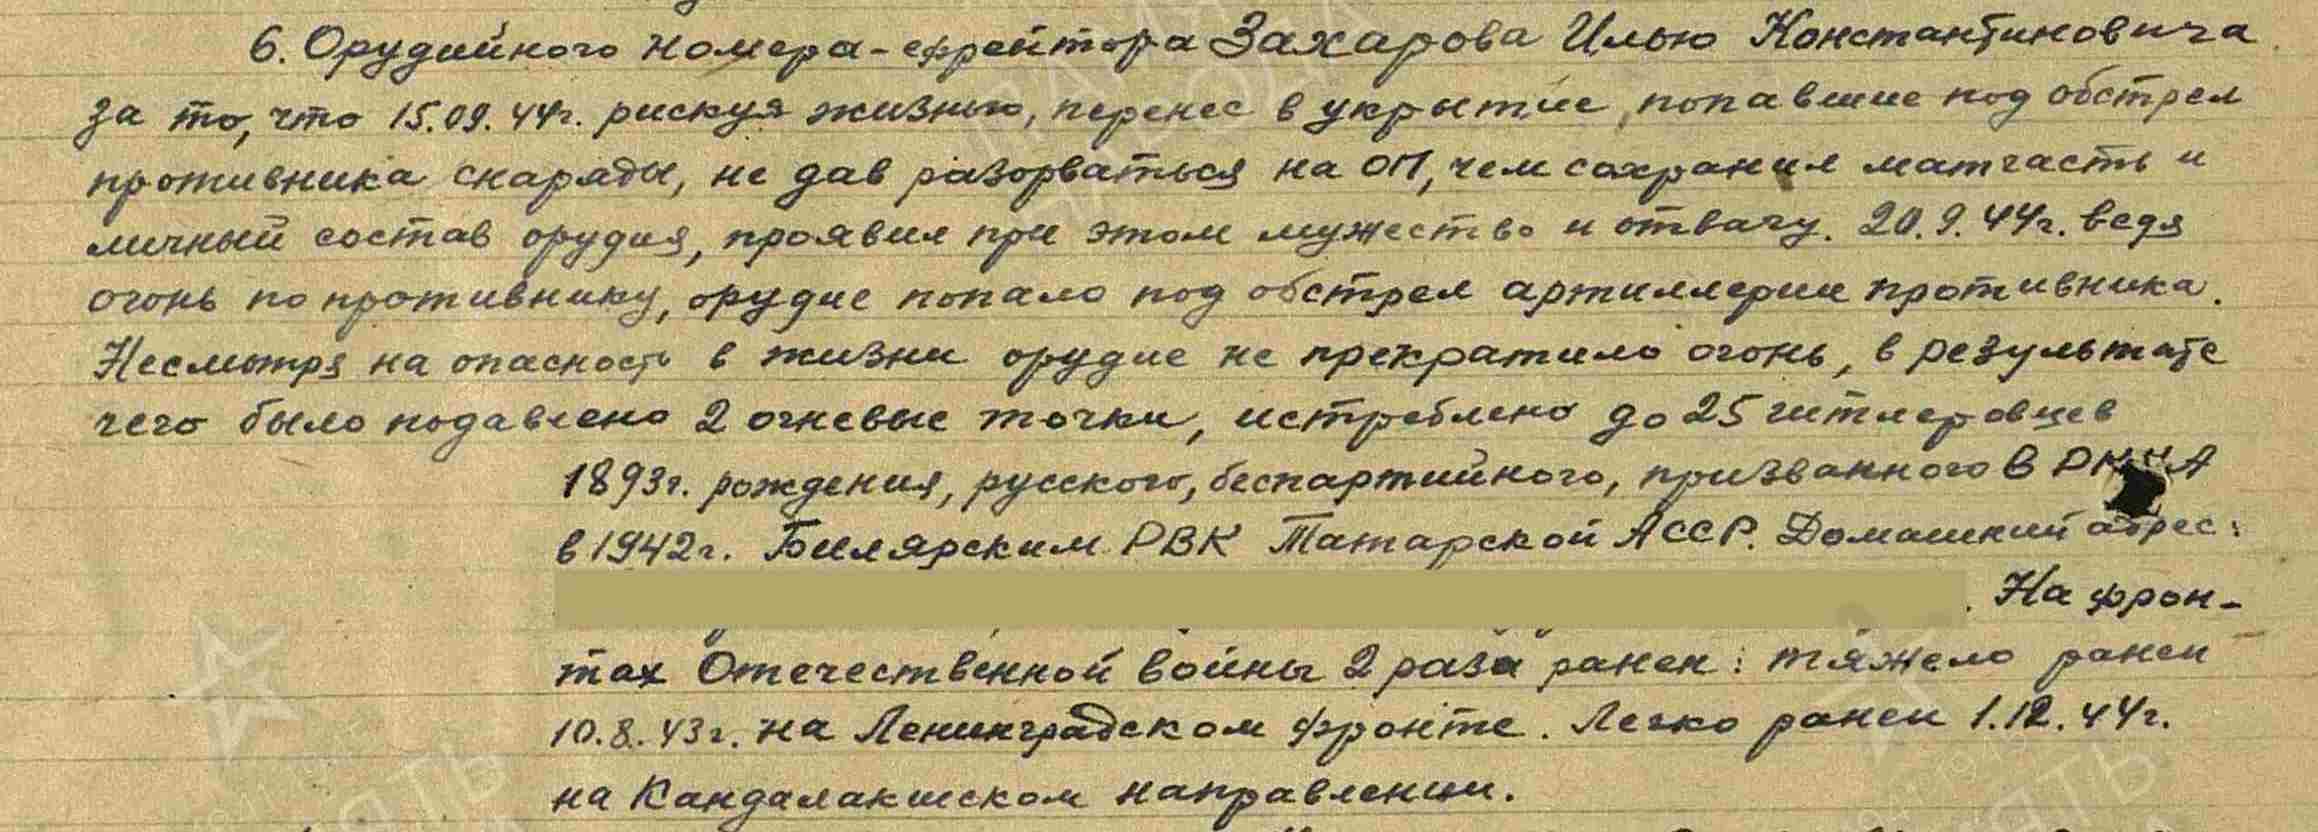 6. Орудийного номера - ефрейтора Захарова Илью Константиновича
за то, что 15.09.44г. рискуя жизнью, перенес в укрытие, попавшие под обстрел
противника снаряды, не дав разорваться на ОП, чем сохранил матчасть и
личный состав орудия, проявил при этом мужество и отвагу. 20.9.44г. ведя
огонь по противнику, орудие попало под обстрел артиллерии противника.
Несмотря на опасность в жизни орудие не прекратило огонь, в результате
чего было подавлено 2 огневые точки, истреблено до 25 гитлеровцев
1893г. рождения, русского, беспартийного, призванного в РККА
в 1942г. Билярским РВК Татарской АССР. Домашний адрес:
. На фрон-
тах Отечественной войны 2 раза ранен: тяжело ранен
10.8.43г. на Ленинградском фронте. Легко ранен 1.12.44г.
на Кандалакшском направлении.